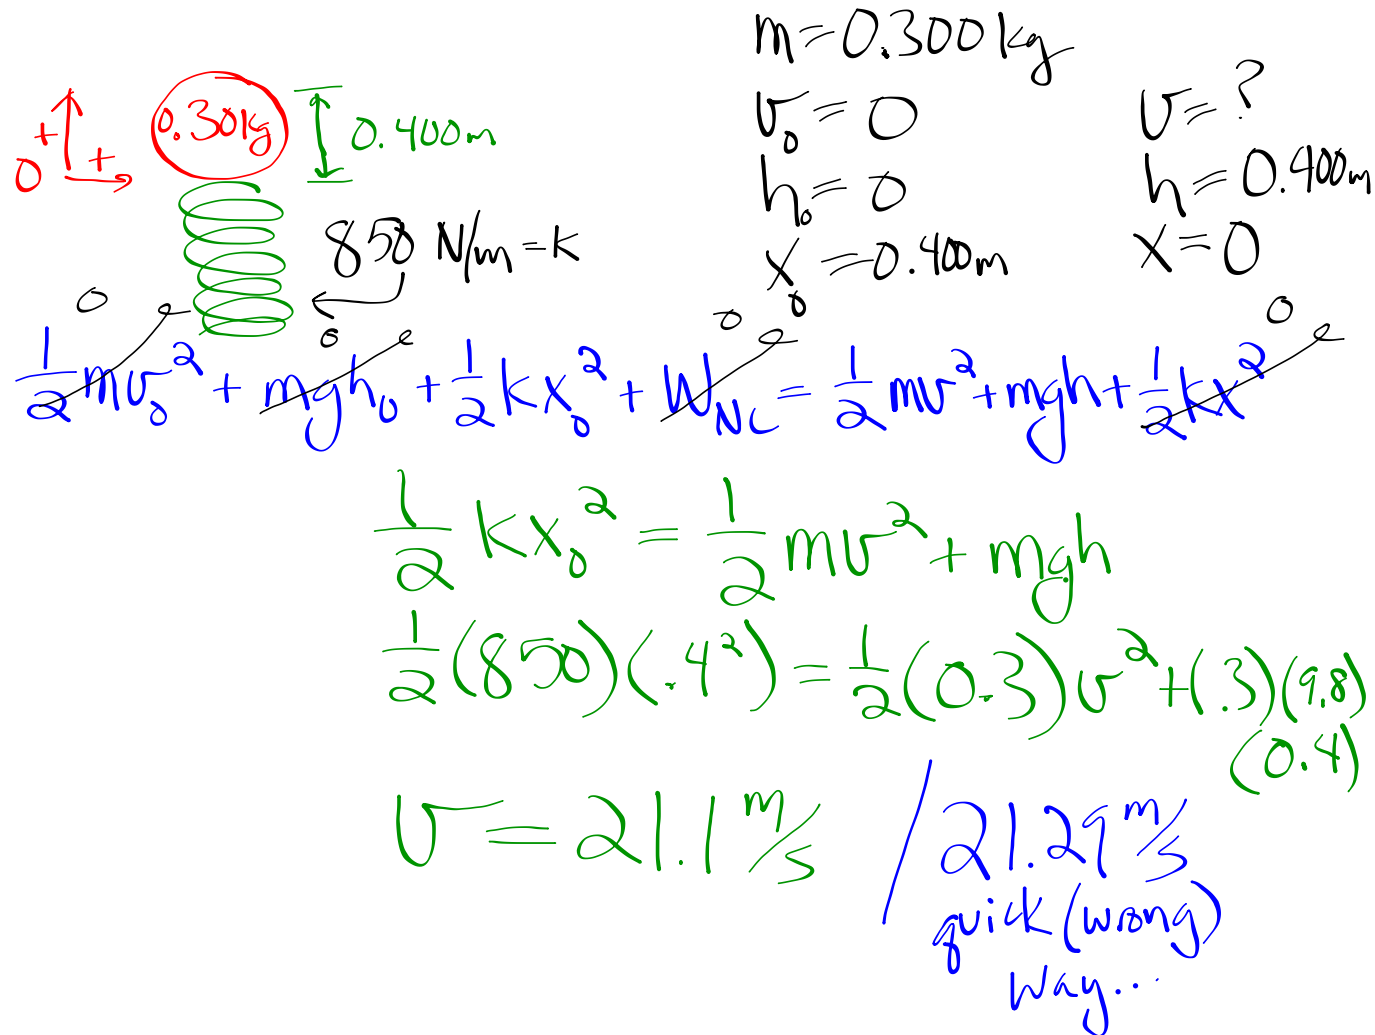 m = 0.300 kg
0.30 kg
0.400 m
+
+
0
v₀ = 0
v = ?
h₀ = 0
h = 0.400 m
850 N/m = k
x₀ = 0.400 m
x = 0
0
0
0
0
½mv₀² + mgh₀ + ½kx₀² + W_NC = ½mv² + mgh + ½kx²
½kx₀² = ½mv² + mgh
½(850)(.4²) = ½(0.3)v² + (.3)(9.8)
(0.4)
v = 21.1 m/s / 21.29 m/s
quick (wrong)
way...